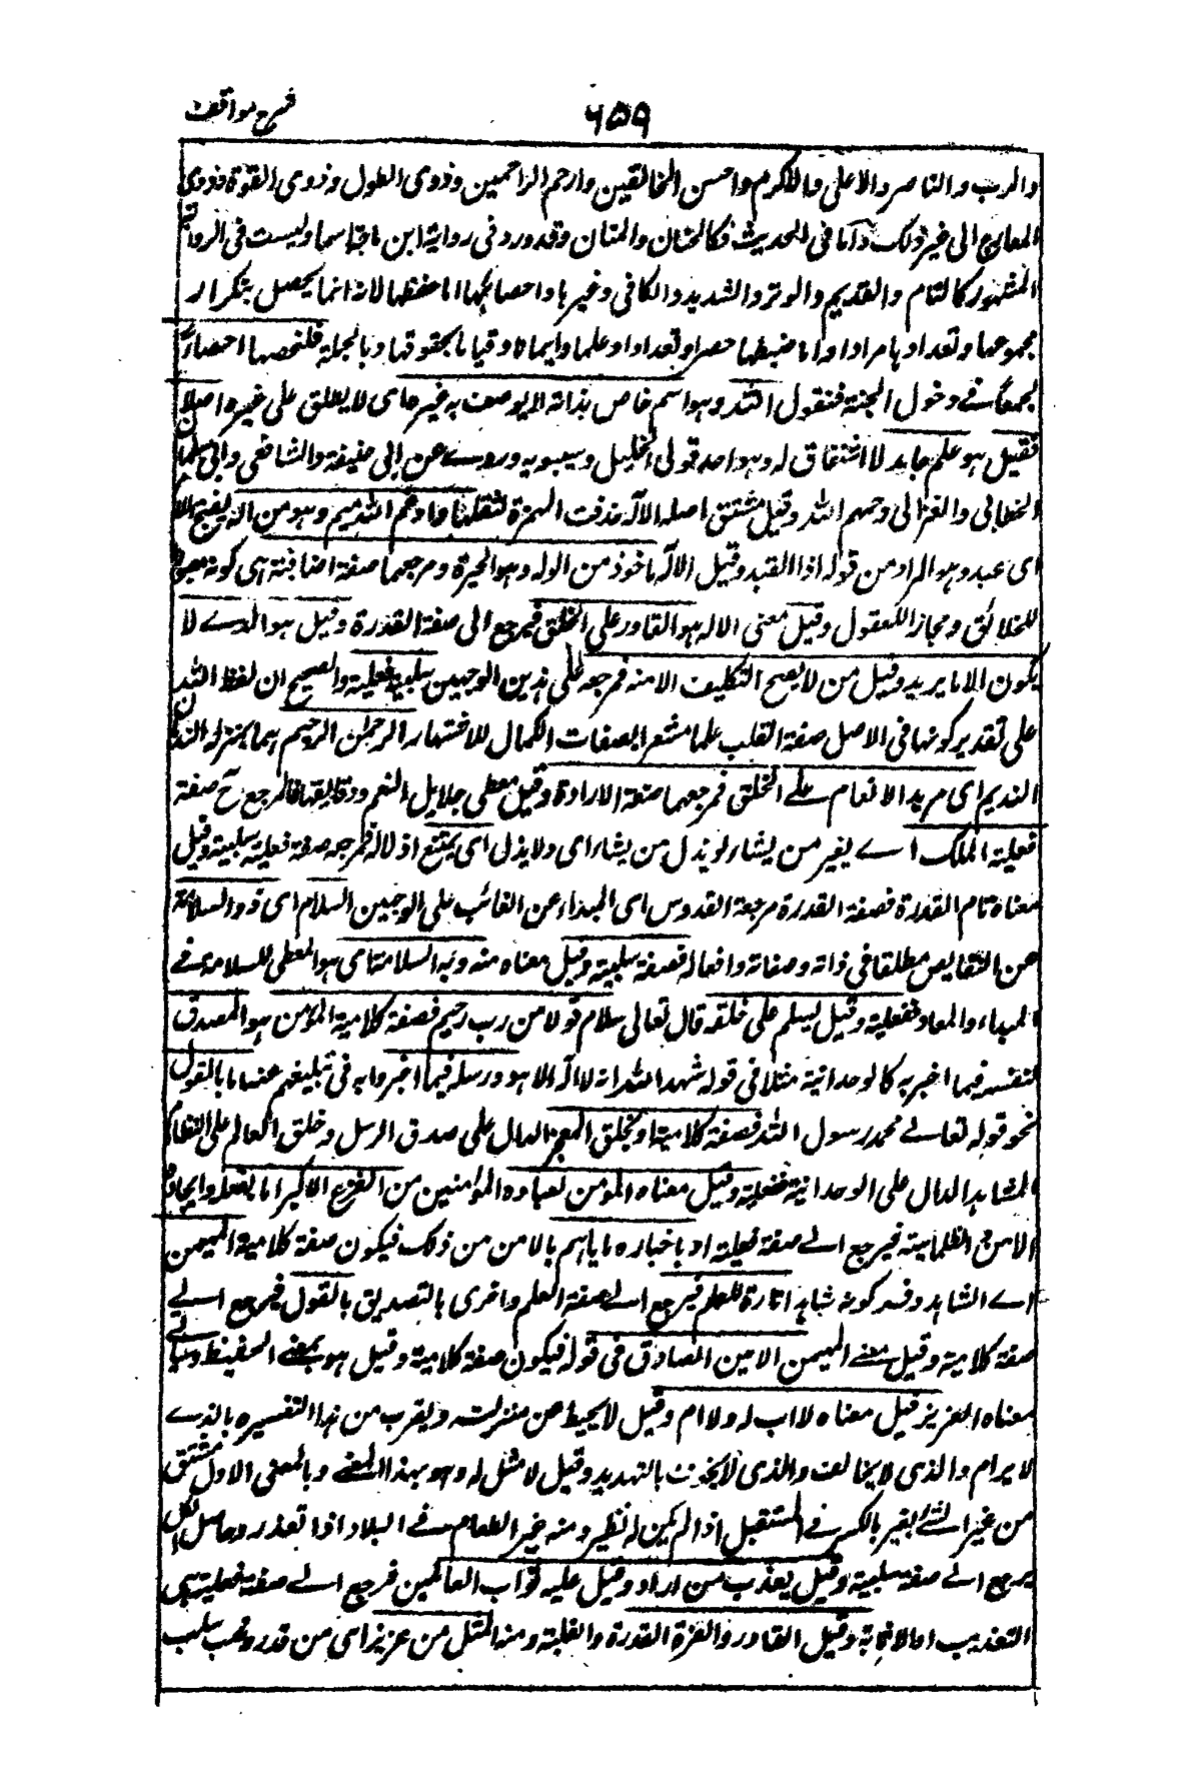 شرح مواقف
۶۵۹
والرب والناصر والاعلى والاكرم واحسن الخالقين وارحم الراحمين وذوى الطول وذوى القوة وذوى
المعارج الى غير ذلك واما فى الحديث فكالحنان والمنان وقد ورد فى رواية ابن ماجة اسما وليست فى الرواية
المشهور كالتام والقديم والوتر والشديد والكافى وغيرها واحصائها اما حفظها لانه انما يحصل بتكرار
مجموعها وتعدادها مرادا واما ضبطها حصرا وتعدادا وعلما وايمانا وقياما بحقوقها وبالجملة فلنحصها احصاء
لجمعنا فى دخول الجنة فنقول الله وهو اسم خاص بذاته لا يوصف به غيره اى لا يطلق على غيره اصلا
فقيل هو علم جامد لا اشتقاق له وهو احد قولى الخليل وسيبويه وروى عن ابى حنيفة والشافعى وابى سليمان
الخطابى والغزالى رحمهم الله وقيل مشتق اصله الاله حذفت الهمزة لثقلها وادغم اللام وهو من اله بفتح اللام
اى عبد وهو المراد من قوله اذا القبد وقيل الاله ماخوذ من الوله وهو الحيرة ومرجعهما صفة اضافية هى كونه معبودا
للخلائق ومجازا للعقول وقيل معنى الاله هو القادر على الخلق فيرجع الى صفة القدرة وقيل هو الذى لا
يكون الا ما يريد وقيل من لا يصح التكليف الا منه فمرجعه على هذين الوجهين سلبية فعلية والصحيح ان لفظ الله
على تقدير كونها فى الاصل صفة انقلب علما مشعرا بصفات الكمال للاشتهار الرحمن الرحيم هما بمنزلة الندمان
النديم اى مريد الانعام على الخلق فمرجعهما صفة الارادة وقيل معطى جلايل النعم ودقايقها فالمرجع ح صفة
فعلية الملك اى يغير من يشاء ولو يذل من يشاء اى ولا يذل اى يمتنع اذلاله فمرجعه صفة فعلية سلبية وقيل
معناه تام القدرة فصفة القدرة مرجعة القدوس اى المبداء عن الغائب على الوجهين السلام اى ذو السلامة
عن النقايص مطلقا فى ذاته وصفاته وافعاله فصفة سلبية وقيل معناه منه وبه السلامة اى هو المعطى للسلامة فى
المبداء والمعاد ففعلية وقيل يسلم على خلقه قال تعالى سلام قولا من رب رحيم فصفة كلامية المؤمن هو المصدق
لنفسه فيما اخبر به كالوحدانية مثلا فى قوله شهد الله انه لا اله الا هو ورسله فيما اخبروا به فى تبليغهم عنه اما بالقول
نحو قوله تعالى محمد رسول الله فصفة كلامية او بخلق المعجز الدال على صدق الرسل وخلق العالم على النظام
المشاهد الدال على الوحدانية ففعلية وقيل معناه المؤمن لعباده المؤمنين من الفزع الاكبر اما بفعله وايجاده
الامن و الطمانينة فيرجع الى صفة فعلية او باخباره اياهم بالامن من ذلك فيكون صفة كلامية المهيمن
اى الشاهد وفسر كونه شاهدا تارة للعلم فيرجع الى صفة العلم واخرى بالتصديق بالقول فيرجع الى
صفة كلامية وقيل معنى المهيمن الامين الصادق فى قوله فيكون صفة كلامية وقيل هو بمعنى الحفيظ وسياتى
معناه العزيز قيل معناه لا اب له ولا ام وقيل لا يحيط عن منزلته ويقرب من هذا التفسيره بالذى
لا يرام والذى لا يخالف والذى لا يخوف بالتهديد وقيل لا مثل له وهو بهذا المعنى وبالمعنى الاول مشتق
من عز الشئ يعز بالكسر فى المستقبل اذا لم يكن له نظير ومنه عز الطعام فى البلاد اذا تعذر وحاصل الكل
يرجع الى صفة سلبية وقيل يعذب من اراد وقيل عليه ثواب العالمين فرجع الى صفة فعلية هى
التعذيب او الاثابة وقيل القادر والعزة القدرة والغلبة ومنه المثل من عز بز اى من قدر وغلب سلب